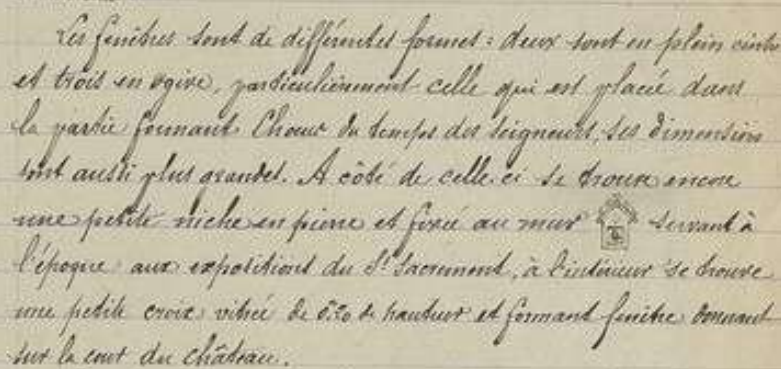 Les fenêtres sont de différentes formes : deux sont en plein cintre
et trois en ogive, particulièrement celle qui est placée dans
la partie formant Chœur du temps des seigneurs, ses dimensions
sont aussi plus grandes. A côté de celle-ci se trouve encore
une petite niche en pierre et fixée au mur servant à
l'époque aux expositions du St Sacrement, à l'intérieur se trouve
une petite croix vitrée de de hauteur et formant fenêtre donnant
sur la cour du château.